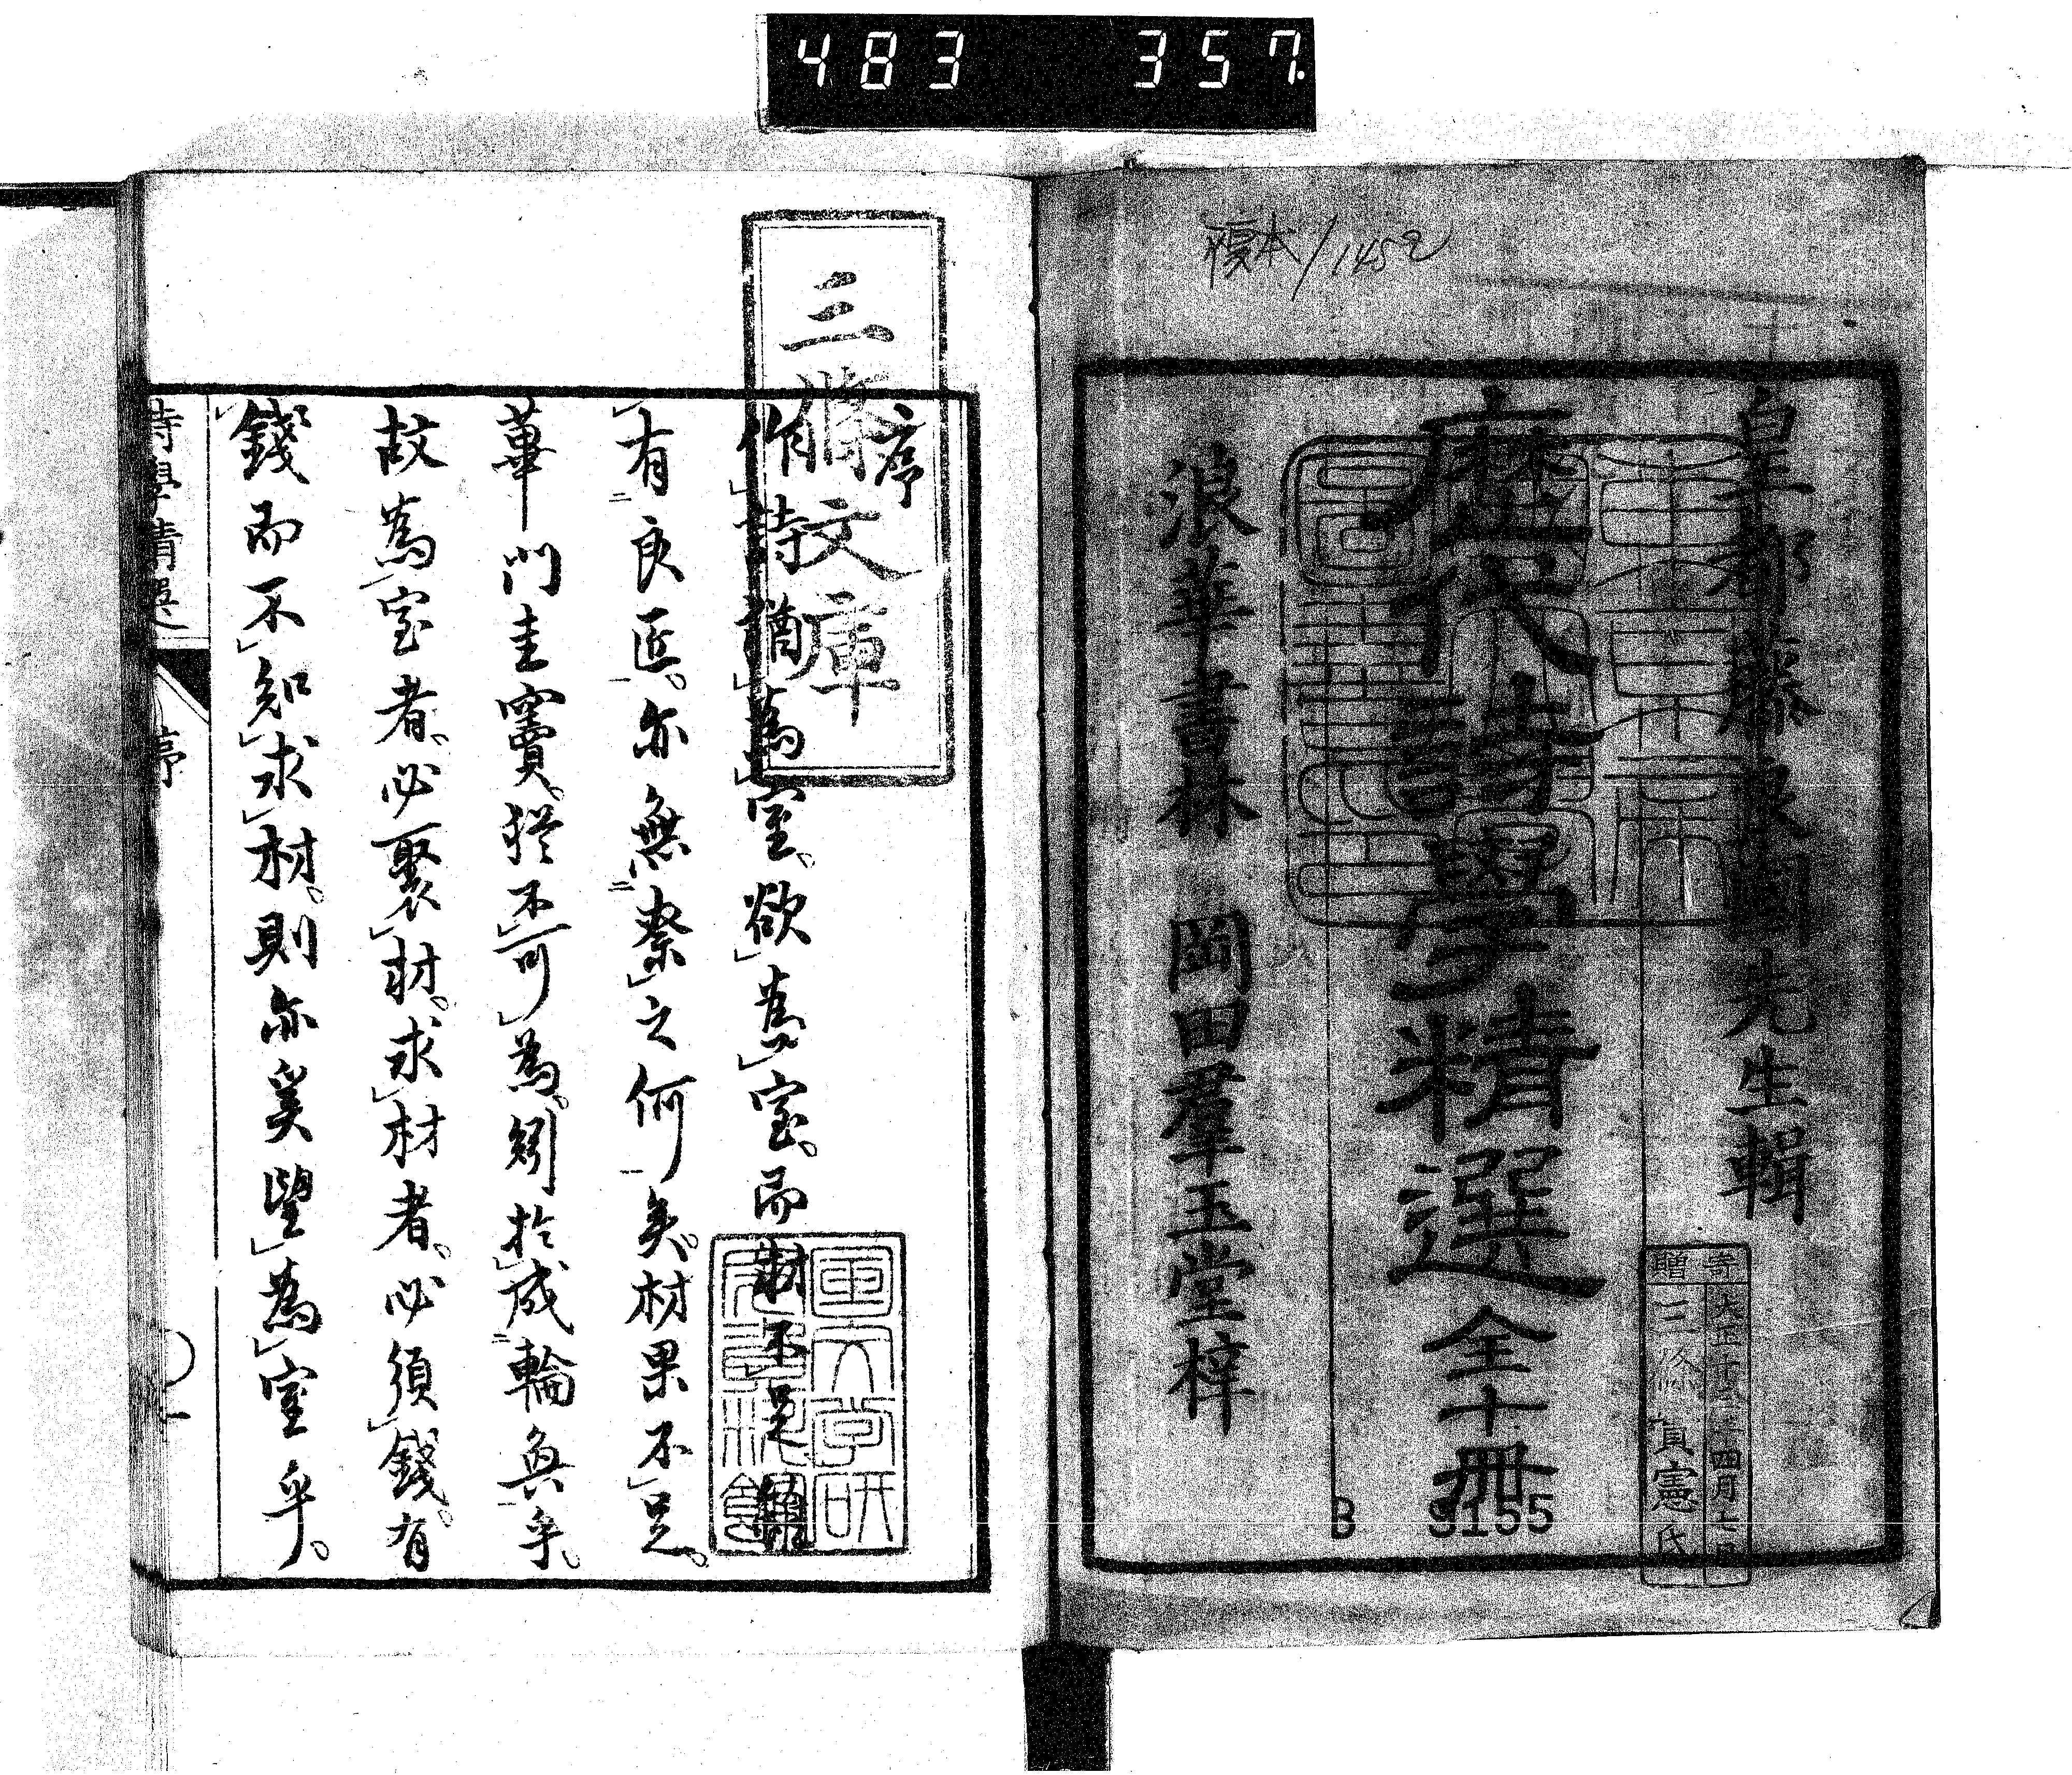 483 357.
複本/1452
皇都藤良國先生輯
歴代詩學精選 全十冊
浪華書林 岡田羣玉堂梓
寄贈
大正十三年四月七日
三條實憲氏
B 9155
三條文庫
序
作詩猶爲室。欲爲室。而材不足。雖
有良匠。亦無柰之何矣。材果不足。
蓽門圭竇。猶不可爲。矧於成輪奐乎。
故爲室者。必聚材。求材者。必須錢。有
錢而不知求材。則亦奚望爲室乎。
詩學精選 序